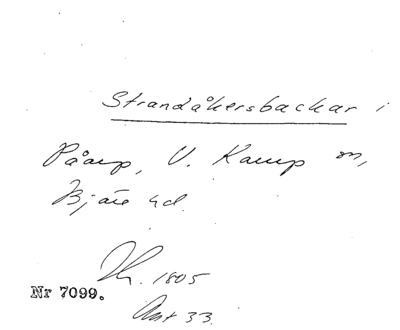 Strandåkersbackar i
Påarp, V. Karup sn,
Bjäre hd.
1805
Nr 7099.
Akt 33.